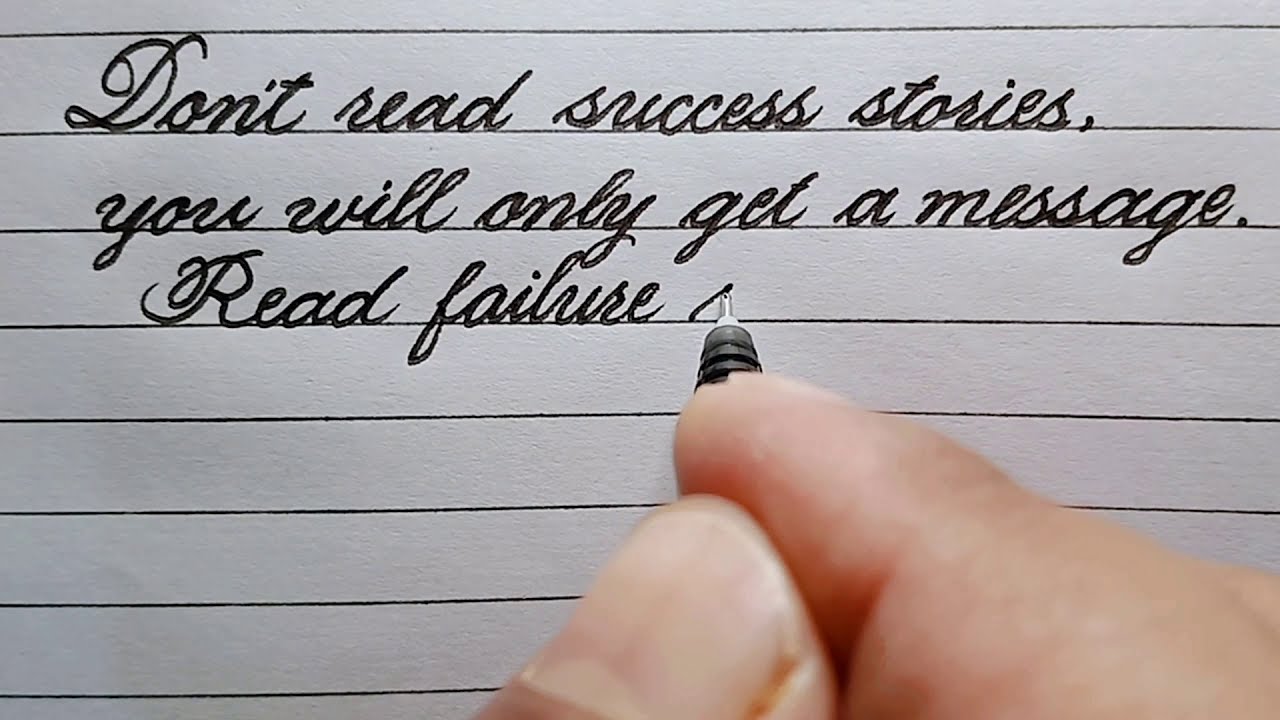 Don't read success stories,
you will only get a message.
Read failure